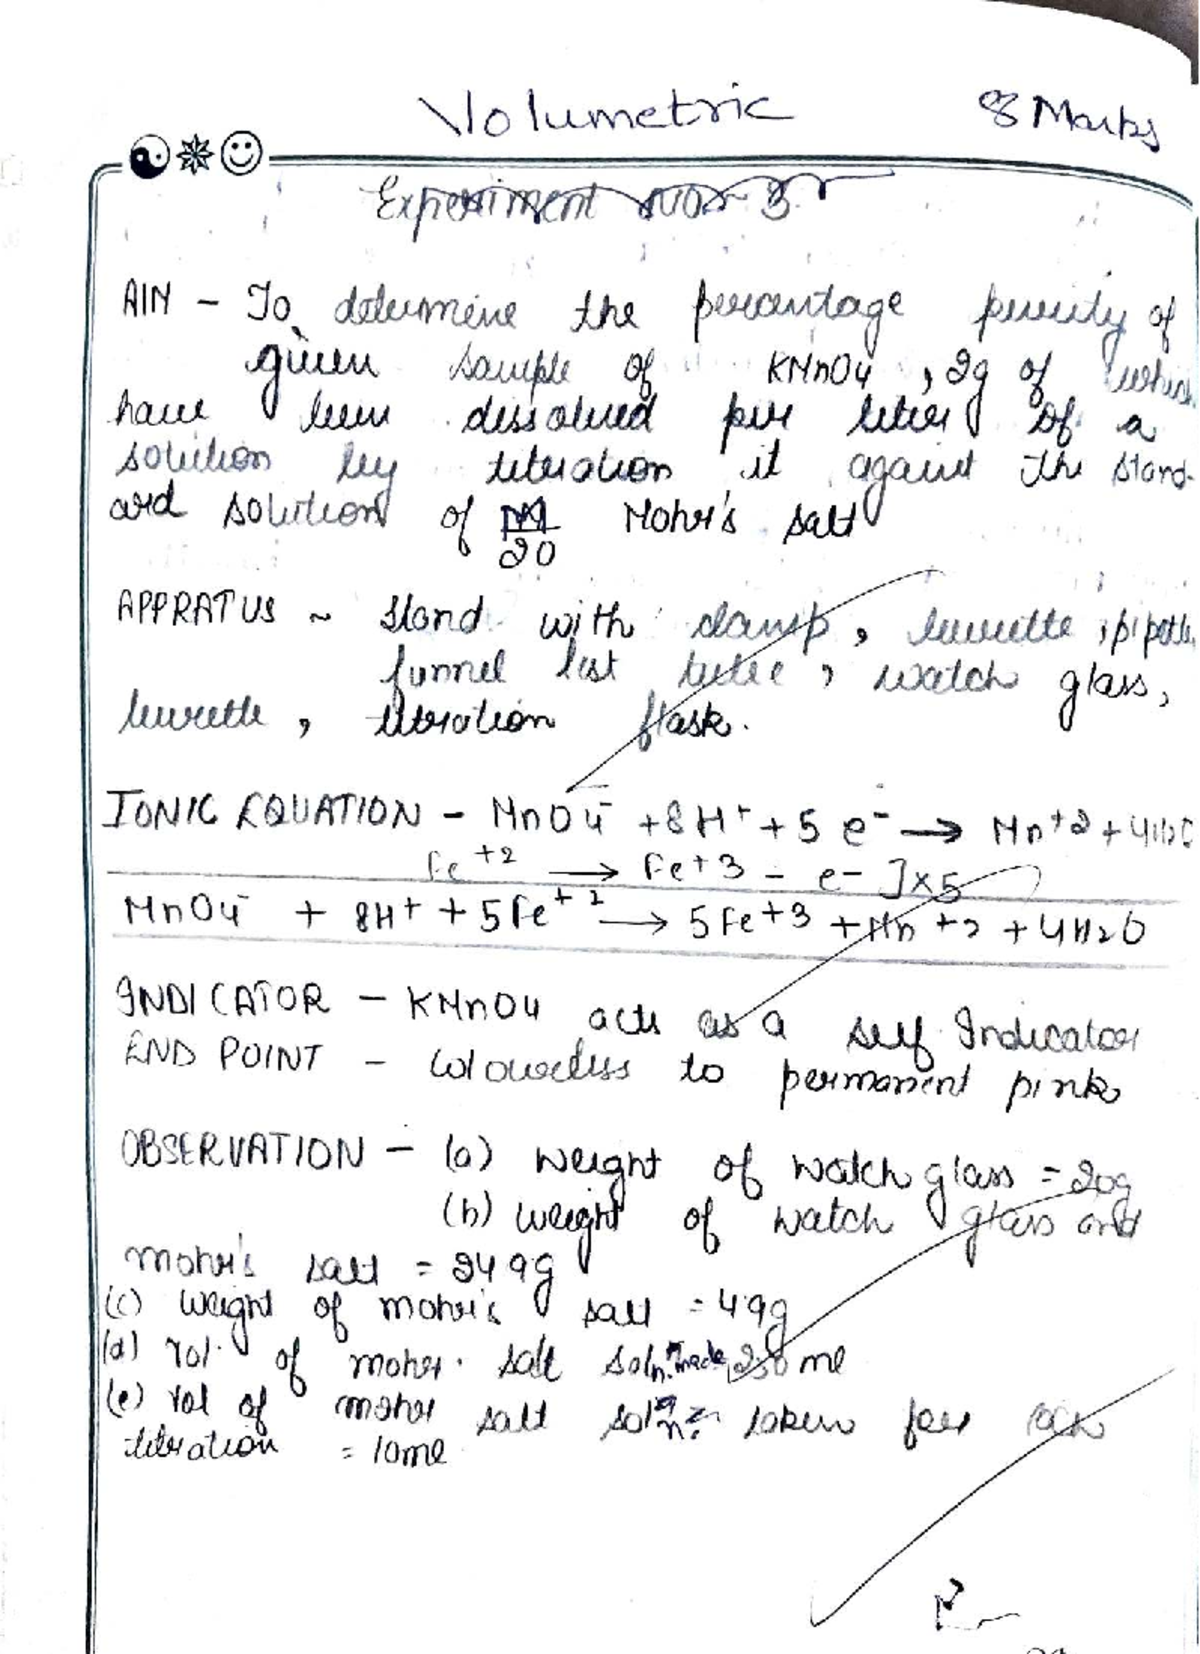 Volumetric 8 Marks
Experiment No - 3
AIM - To determine the percantage purity of
given sample of KMnO4, 2g of which
have been dissolved per liter of a
solution by titeration it against the stand-
ard solution of M/20 Mohr's salt
APPRATUS ~ stand with clamp, burette, pipette,
funnel test tube, watch glass,
burette, titration flask.
IONIC EQUATION - MnO4⁻ + 8H⁺ + 5 e⁻ → Mn⁺² + 4H2O
Fe⁺² → Fe+3 - e- ]×5
MnO4⁻ + 8H⁺ + 5Fe⁺² → 5Fe+3 + Mn+2 + 4H2O
INDICATOR - KMnO4 acts as a self Indicator
END POINT - colourless to permanent pink
OBSERVATION - (a) weight of watch glass = 20g
(b) weight of watch glass and
mohr's salt = 24.9g
(c) weight of mohr's salt = 4.9g
(d) Vol. of moher salt soln. made 250 ml
(e) Vol of moher salt soln. taken for each
titration = 10ml